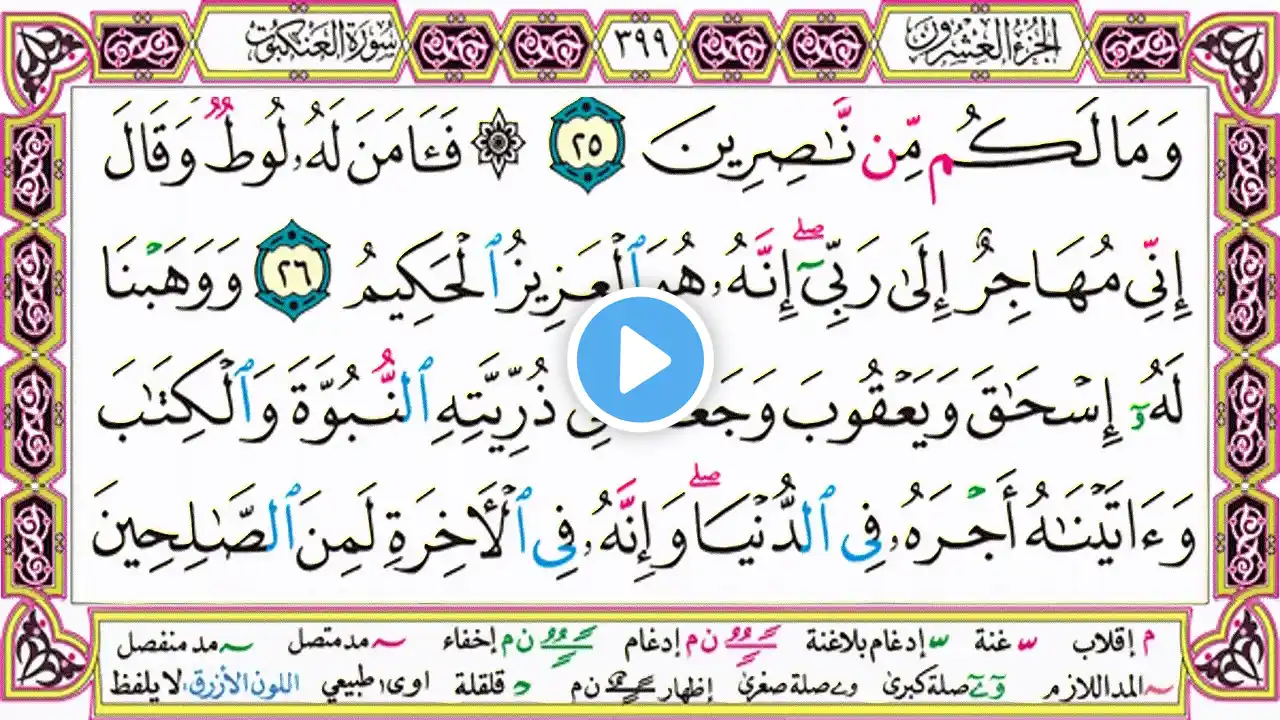 الجزء العشرون ٣٩٩ سورة العنكبوت
وَمَا لَكُم مِّن نَّـٰصِرِينَ ٢٥ ۞ فَـَٔامَنَ لَهُۥ لُوطٌۘ وَقَالَ
إِنِّى مُهَاجِرٌ إِلَىٰ رَبِّىٓۖ إِنَّهُۥ هُوَ ٱلْعَزِيزُ ٱلْحَكِيمُ ٢٦ وَوَهَبْنَا
لَهُۥٓ إِسْحَـٰقَ وَيَعْقُوبَ ذُرِّيَّتِهِ ٱلنُّبُوَّةَ وَٱلْكِتَـٰبَ
وَءَاتَيْنَـٰهُ أَجْرَهُۥ فِى ٱلدُّنْيَاۖ وَإِنَّهُۥ فِى ٱلْـَٔاخِرَةِ لَمِنَ ٱلصَّـٰلِحِينَ
م إقلاب غنة إدغام بلاغنة ن م إدغام ن م إخفاء مد متصل مد منفصل
المد اللازم صلة كبرى صلة صغرى إظهار ن م قلقلة اوى، طبيعي اللون الأزرق، لا يلفظ